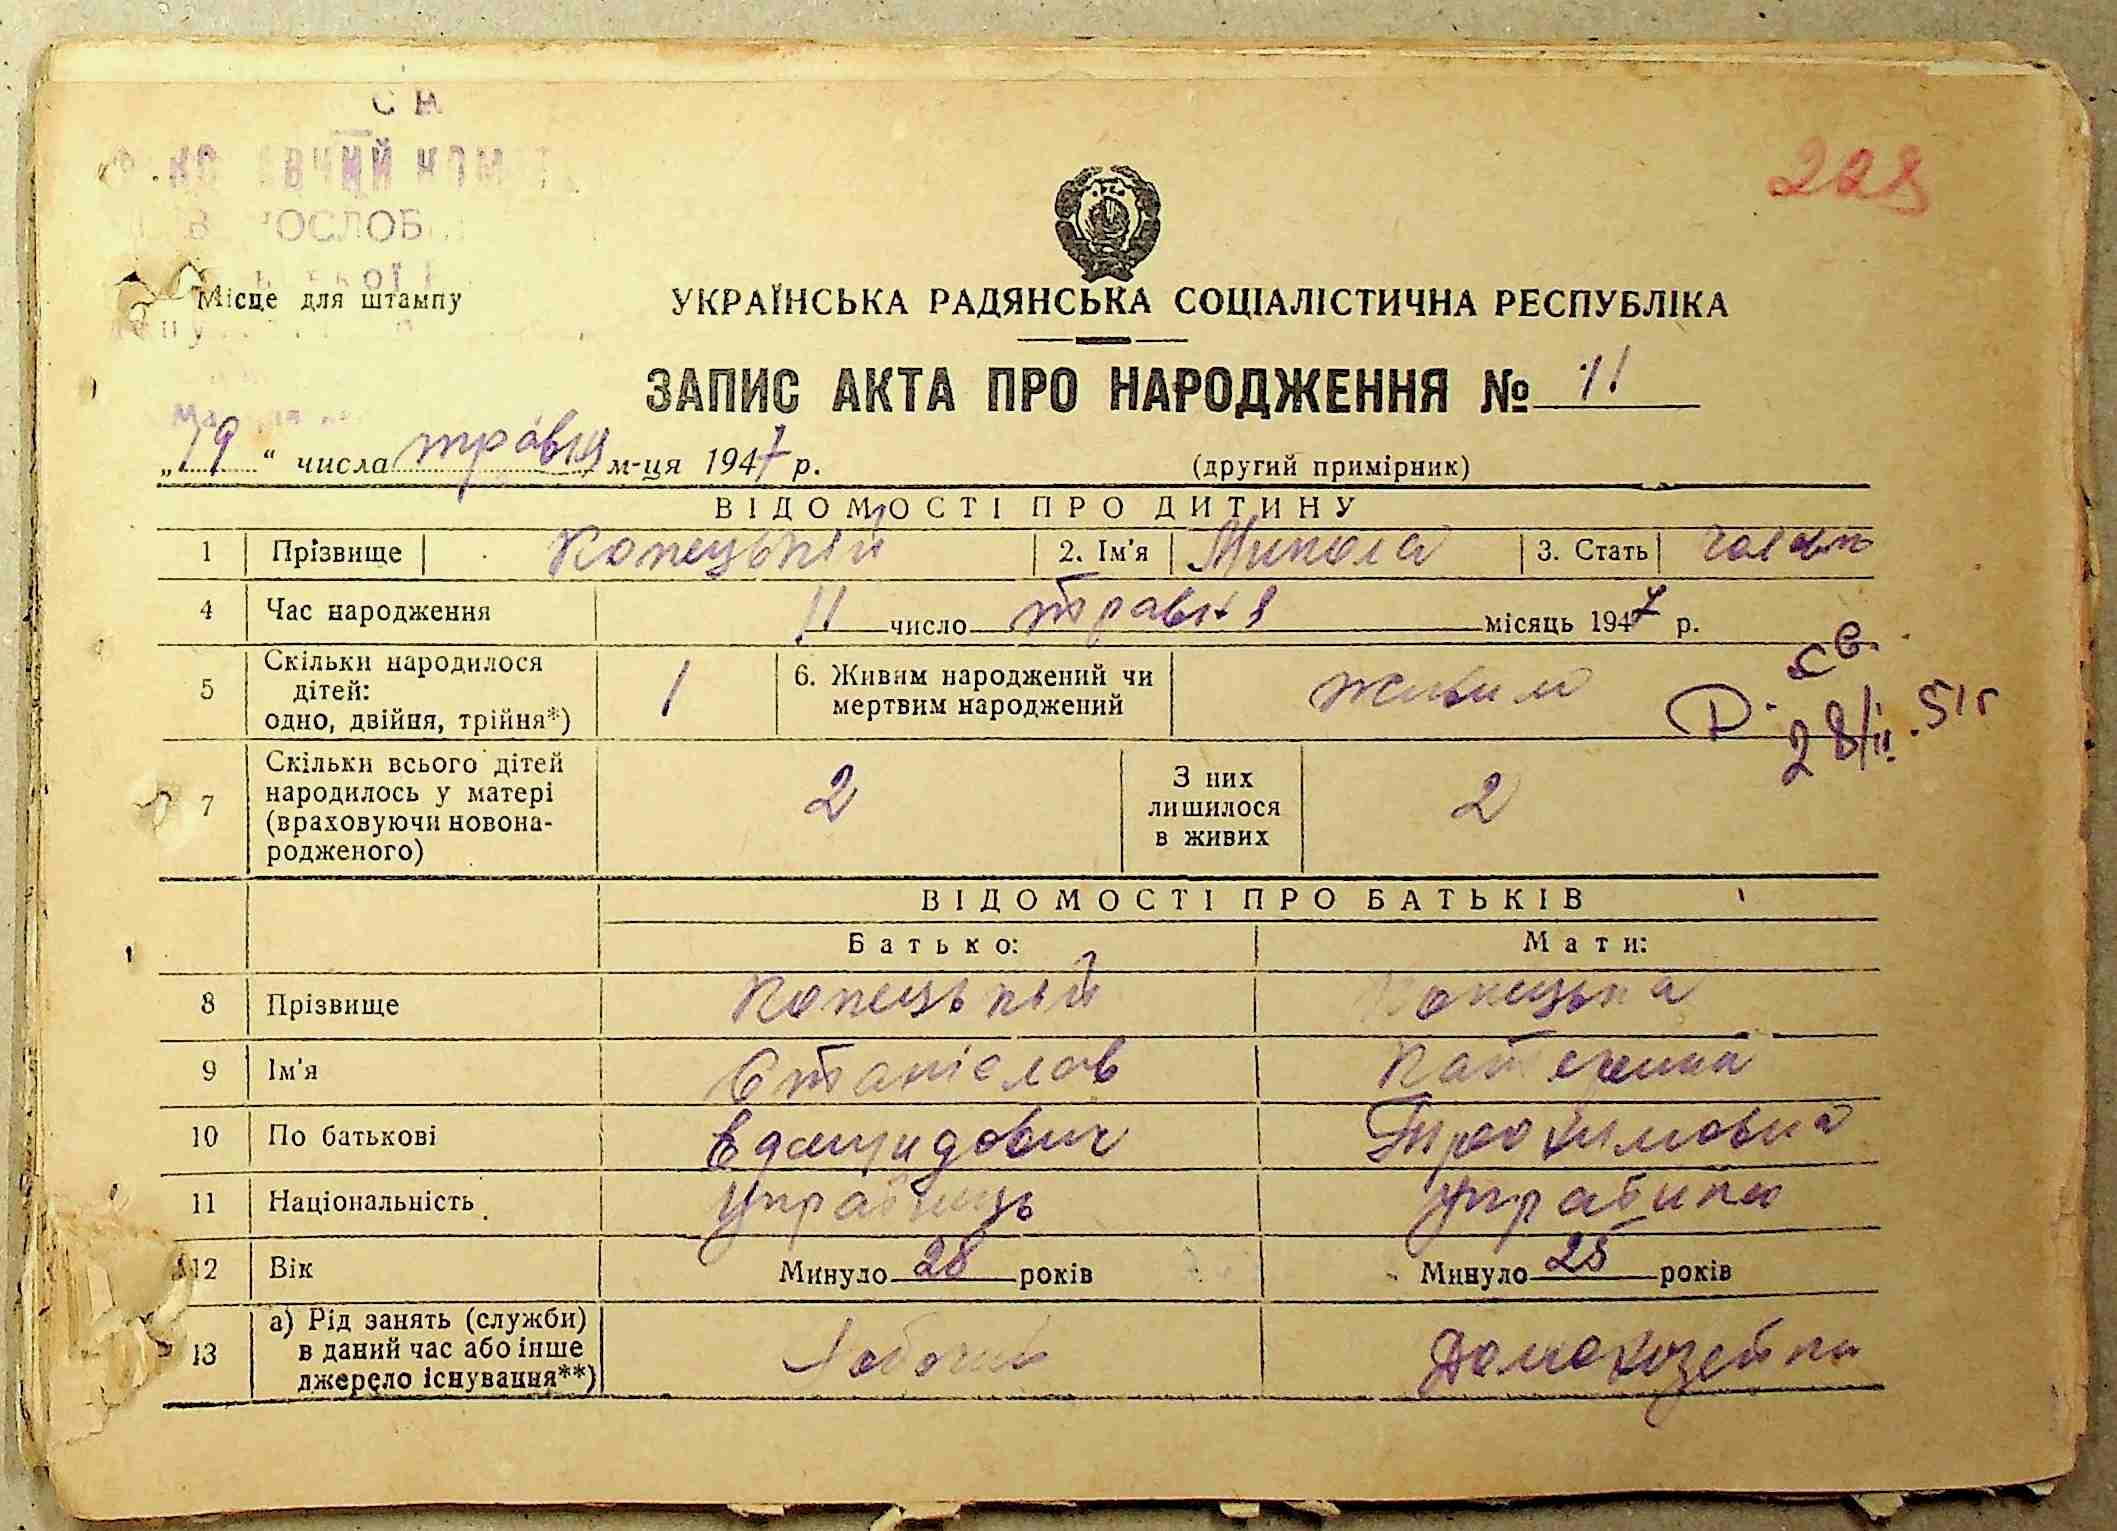 228
ОСЛОБ
Місце для штампу
УКРАЇНСЬКА РАДЯНСЬКА СОЦІАЛІСТИЧНА РЕСПУБЛІКА
ЗАПИС АКТА ПРО НАРОДЖЕННЯ № 11
„19“ числа травня м-ця 1947 р. (другий примірник)
ВІДОМОСТІ ПРО ДИТИНУ
1 Прізвище Копецький 2. Ім'я Микола 3. Стать
4 Час народження 11 число травня місяць 1947 р.
5 Скільки народилося дітей: одно, двійня, трійня*) 1 6. Живим народжений чи мертвим народжений живим
св
28/II.51г
7 Скільки всього дітей народилось у матері (враховуючи новонародженого) 2 З них лишилося в живих 2
ВІДОМОСТІ ПРО БАТЬКІВ
Батько: Мати:
8 Прізвище Копецький Копецька
9 Ім'я Станіслав Катерина
10 По батькові Трохимовна
11 Національність українець українка
12 Вік Минуло 28 років Минуло 25 років
13 а) Рід занять (служби) в даний час або інше джерело існування**) Робочий Домохозейка